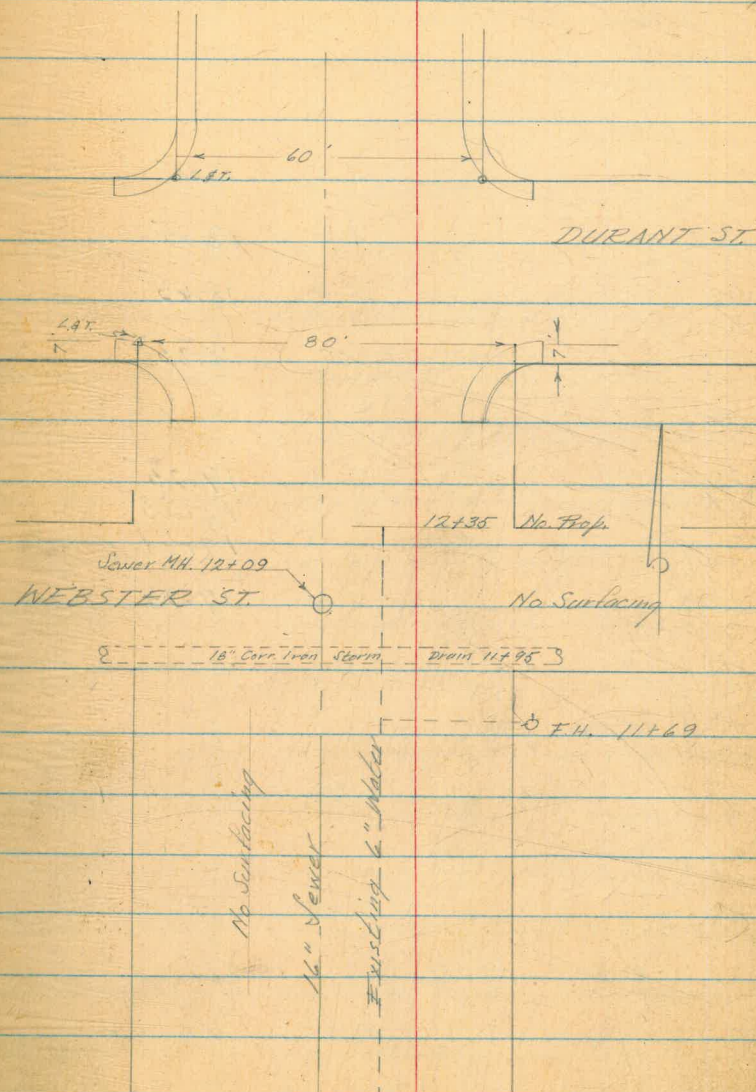 60'
L.&T.
DURANT ST.
L.&T.
7'
80'
7'
12+35 No. Prop.
Sewer M.H. 12+09
WEBSTER ST.
No Surfacing
18" Corr. Iron Storm Drain 11+95
F.H. 11+69
No Surfacing
16" Sewer
Existing 6" Water